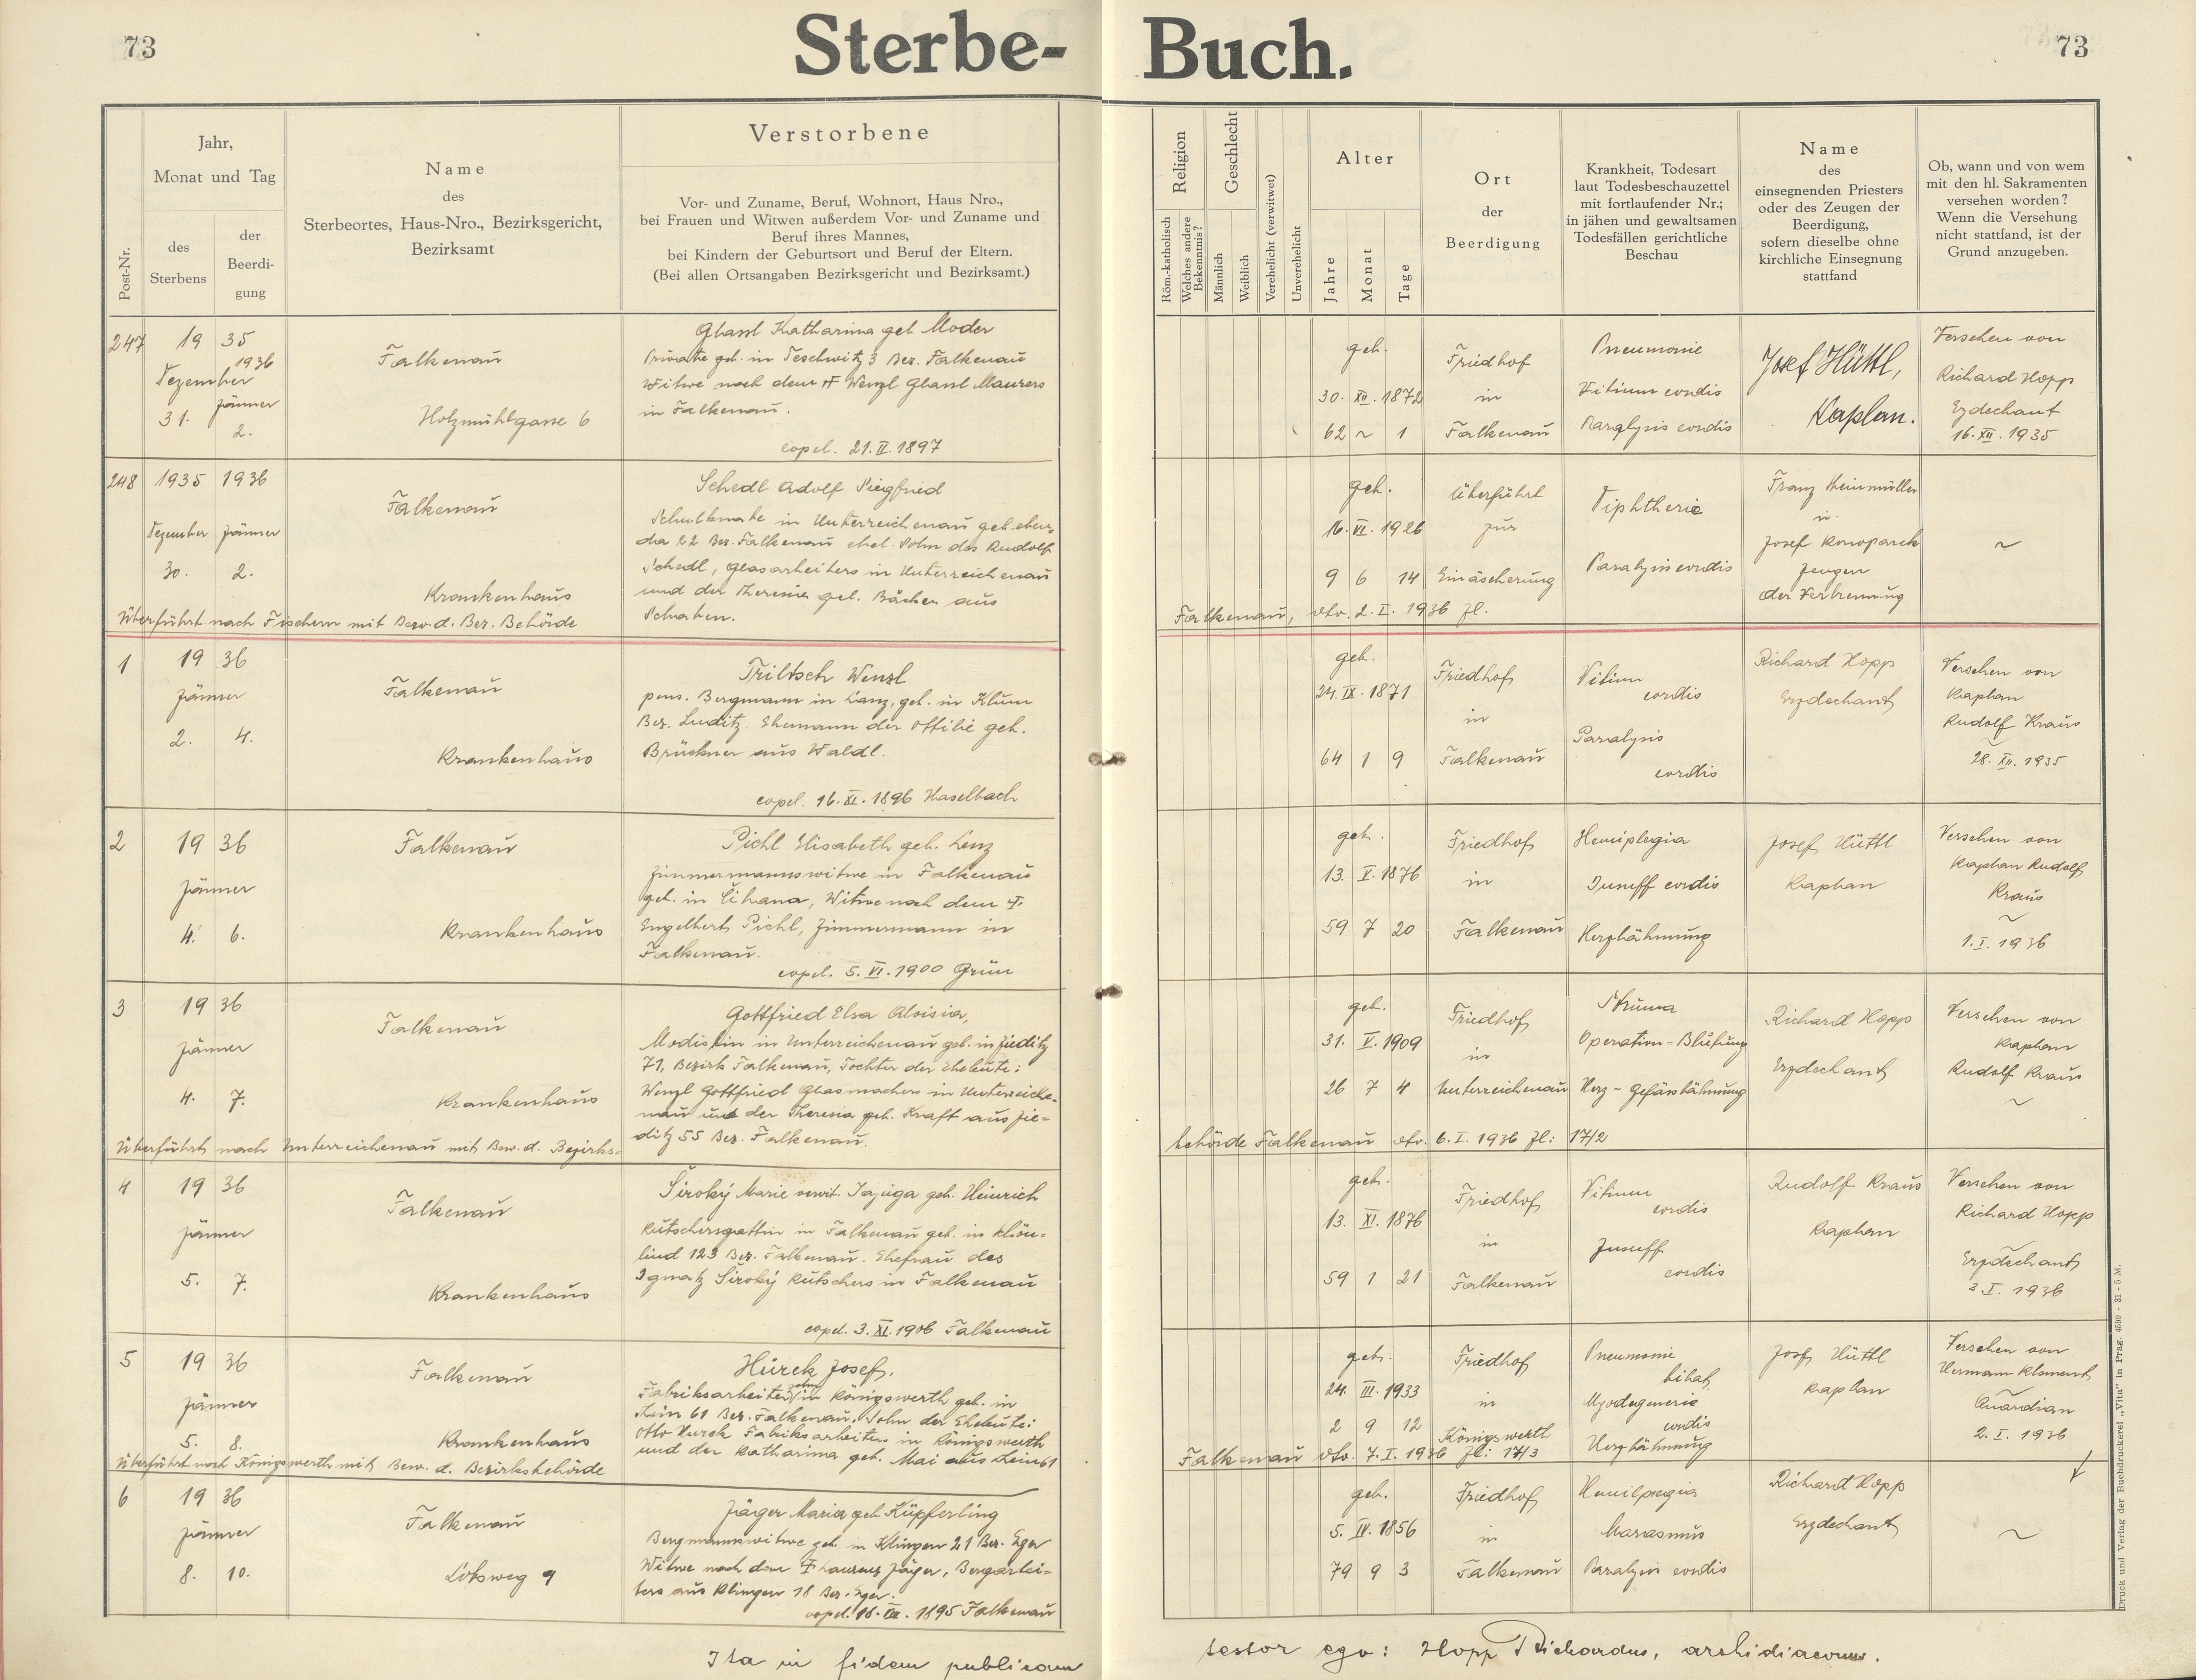 73
Sterbe-Buch.
73
Post-Nr.
Jahr,
Monat und Tag
des
Sterbens
der
Beerdi-
gung
Name
des
Sterbeortes, Haus-Nro., Bezirksgericht,
Bezirksamt
Verstorbene
Vor- und Zuname, Beruf, Wohnort, Haus Nro.,
bei Frauen und Witwen außerdem Vor- und Zuname und
Beruf ihres Mannes,
bei Kindern der Geburtsort und Beruf der Eltern.
(Bei allen Ortsangaben Bezirksgericht und Bezirksamt.)
Religion
Röm.-katholisch
Welches andere
Bekenntnis?
Geschlecht
Männlich
Weiblich
Verehelicht (verwitwet)
Unverehelicht
Alter
Jahre
Monat
Tage
Ort
der
Beerdigung
Krankheit, Todesart
laut Todesbeschauzettel
mit fortlaufender Nr.;
in jähen und gewaltsamen
Todesfällen gerichtliche
Beschau
Name
des
einsegnenden Priesters
oder des Zeugen der
Beerdigung,
sofern dieselbe ohne
kirchliche Einsegnung
stattfand
Ob, wann und von wem
mit den hl. Sakramenten
versehen worden?
Wenn die Versehung
nicht stattfand, ist der
Grund anzugeben.
247
19 35
1936
Dezember
Jänner
31.
2.
Falkenau
Holzmühlgasse 6
Glassl Katharina geb. Moder
Private geb. in Teschwitz 3 Bez. Falkenau
Witwe nach dem Wenzl Glassl Maurers
in Falkenau.
copul. 21. II. 1897
geb.
30. XII. 1872
62 ~ 1
Friedhof
in
Falkenau
Pneumonie
Vitium cordis
Paralysis cordis
Josef Hüttl,
Kaplan.
Versehen von
Richard Hopp
Erzdechant
16. XII. 1935
248
1935 1936
Dezember Jänner
30. 2.
Falkenau
Krankenhaus
Schedl Adolf Siegfried
Schulknabe in Unterreichenau geb. eben-
da 22 Bez. Falkenau ehel. Sohn des Rudolf
Schedl, Glasarbeiters in Unterreichenau
und der Theresia geb. aus
geb.
16. VI. 1926
9 6 14
Überführt
zur
Einäscherung
Diphtherie
Paralysis cordis
Franz Steinmüller
u.
Josef Konoparek
Zeugen
der Verbrennung
~
Überführt nach Fischern mit Bew. d. Bez. Behörde Falkenau, dto. 2. I. 1936 Zl.
1
19 36
Jänner
2. 4.
Falkenau
Krankenhaus
Triltsch Wenzl
pens. Bergmann in Lanz, geb. in Klum
Bez. Luditz. Ehemann der Ottilie geb.
Brückner aus Waldl.
copul. 16. XI. 1896 Haselbach
geb.
24. IX. 1871
64 1 9
Friedhof
in
Falkenau
Vitium
cordis
Paralysis
cordis
Richard Hopp
Erzdechant
Versehen von
Kaplan
Rudolf Kraus
28. XII. 1935
2
19 36
Jänner
4. 6.
Falkenau
Krankenhaus
Pichl Elisabeth geb. Lenz
Zimmermannswitwe in Falkenau
geb. in Cihana, Witwe nach dem †
Engelbert Pichl, Zimmermann in
Falkenau.
copul. 5. VI. 1900 Grün
geb.
13. V. 1876
59 7 20
Friedhof
in
Falkenau
Hemiplegia
Insuff cordis
Herzlähmung
Josef Hüttl
Kaplan
Versehen von
Kaplan Rudolf
Kraus
~
1. I. 1936
3
19 36
Jänner
4. 7.
Falkenau
Krankenhaus
Gottfried Elsa Aloisia,
Modistin in Unterreichenau geb. in Zieditz
71, Bezirk Falkenau, Tochter der Eheleute:
Wenzl Gottfried Glasmachers in Unterreiche-
nau und der Theresia geb. Kraft aus Zie-
ditz 55 Bez. Falkenau.
geb.
31. V. 1909
26 7 4
Friedhof
in
Unterreichenau
Struma
Operation-Blutung
Herz-Gefässlähmung
Richard Hopp
Erzdechant
Versehen von
Kaplan
Rudolf Kraus
~
Überführt nach Unterreichenau mit Bew. d. Bezirks-
behörde Falkenau dto. 6. I. 1936 Zl: 17/2
4
19 36
Jänner
5. 7.
Falkenau
Krankenhaus
Široký Marie verwit. geb. Heinrich
Kutschersgattin in Falkenau geb. in
lind 123 Bez. Falkenau. Ehefrau des
Ignatz Široký Kutschers in Falkenau
copul. 3. XI. 1906 Falkenau
geb.
13. XI. 1876
59 1 21
Friedhof
in
Falkenau
Vitium
cordis
Insuff
cordis
Rudolf Kraus
Kaplan
Versehen von
Richard Hopp
Erzdechant
3. I. 1936
5
19 36
Jänner
5. 8.
Falkenau
Krankenhaus
Hurek Josef,
Fabriksarbeiterssohn in Königswerth geb. in
61 Bez. Falkenau. Sohn der Eheleute:
Otto Hurek Fabriksarbeiters in Königswerth
und der Katharina geb. Mai aus 61
geb.
24. III. 1933
2 9 12
Friedhof
in
Königswerth
Pneumonie
bilat.
Myodegenerie
cordis
Herzlähmung
Josef Hüttl
Kaplan
Versehen von
Hermann Klement
Guardian
2. I. 1936
Überführt nach Königswerth mit Bew. d. Bezirksbehörde
Falkenau dto. 7. I. 1936 Zl: 17/3
6
19 36
Jänner
8. 10.
Falkenau
9
Jäger Maria geb. Küpferling
Bergmannswitwe geb. in Klingen 21 Bez. Eger
Witwe nach dem † Laurenz Jäger, Bergarbei-
ters aus Klingen 18 Bez. Eger.
copul. 1895 Falkenau
geb.
5. IV. 1856
79 9 3
Friedhof
in
Falkenau
Hemilpegia
Marasmus
Paralysis cordis
Richard Hopp
Erzdechant
~
Ita in fidem publicam testor ego: Hopp Richardus, archidiaconus.
Druck und Verlag der Buchdruckerei „Vita" in Prag. 4599 - 31 - 5 M.